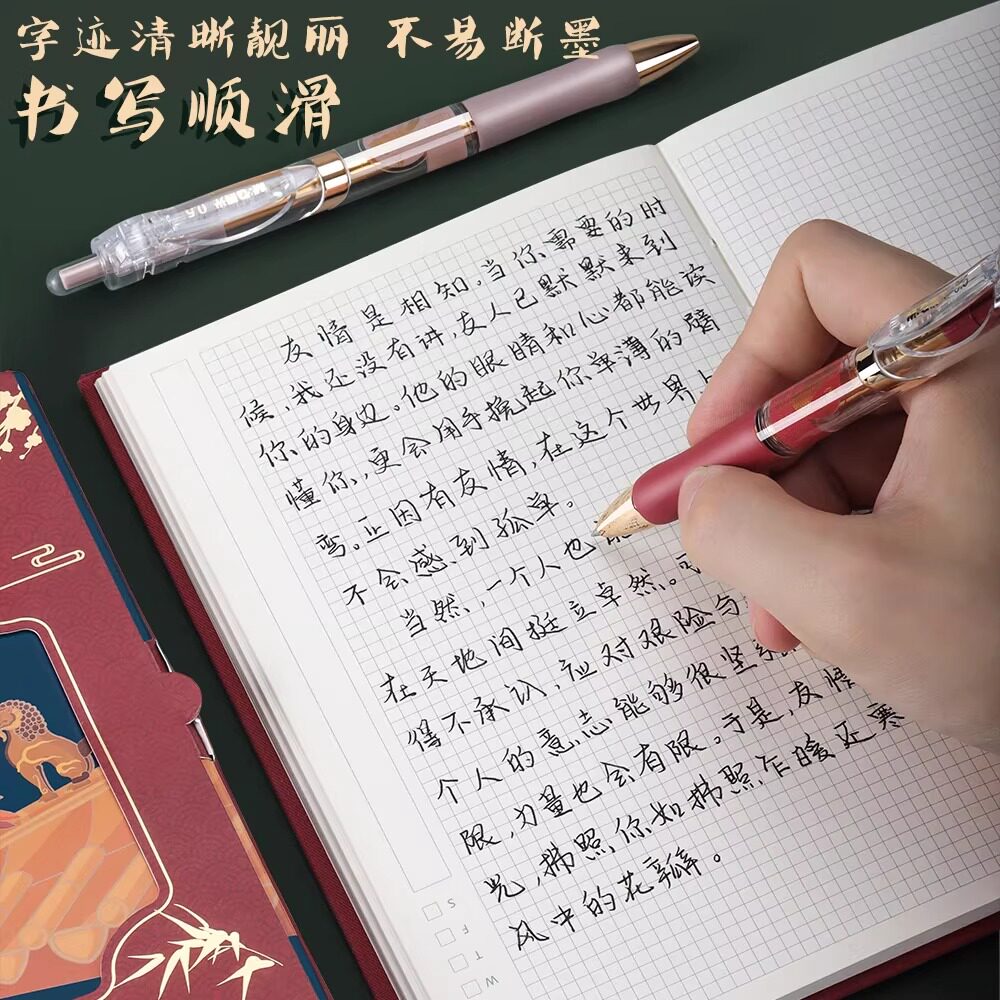 字迹清晰靓丽 不易断墨
书写顺滑
友情是相知。当你需要的时
候，我还没有讲，友人已默默来到
你的身边。他的眼睛和心都能读
懂你，更会用手挽起你单薄的臂
弯。正因有友情，在这个世界上
不会感到孤单。
当然，一个人也
在天地间挺立卓然。
得不承认，应对艰险与
个人的意志能够很坚
限，力量也会有限。于是，友情
光，拂照你如拂照乍暖还寒
风中的花瓣。
S
F
T
W
0.5